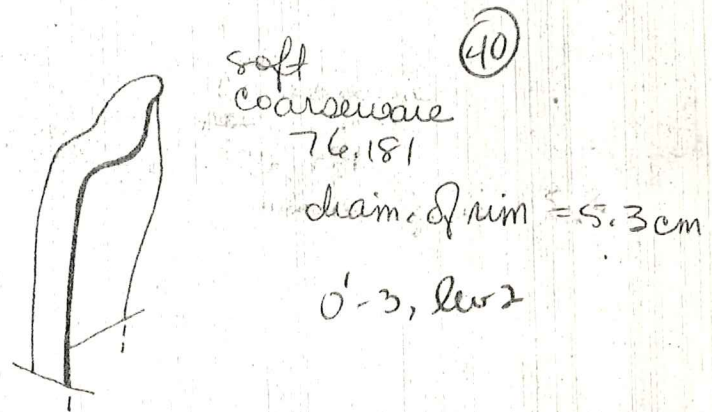 40
soft
coarseware
76.181
diam. of rim = 5.3 cm
0'-3, lev 2